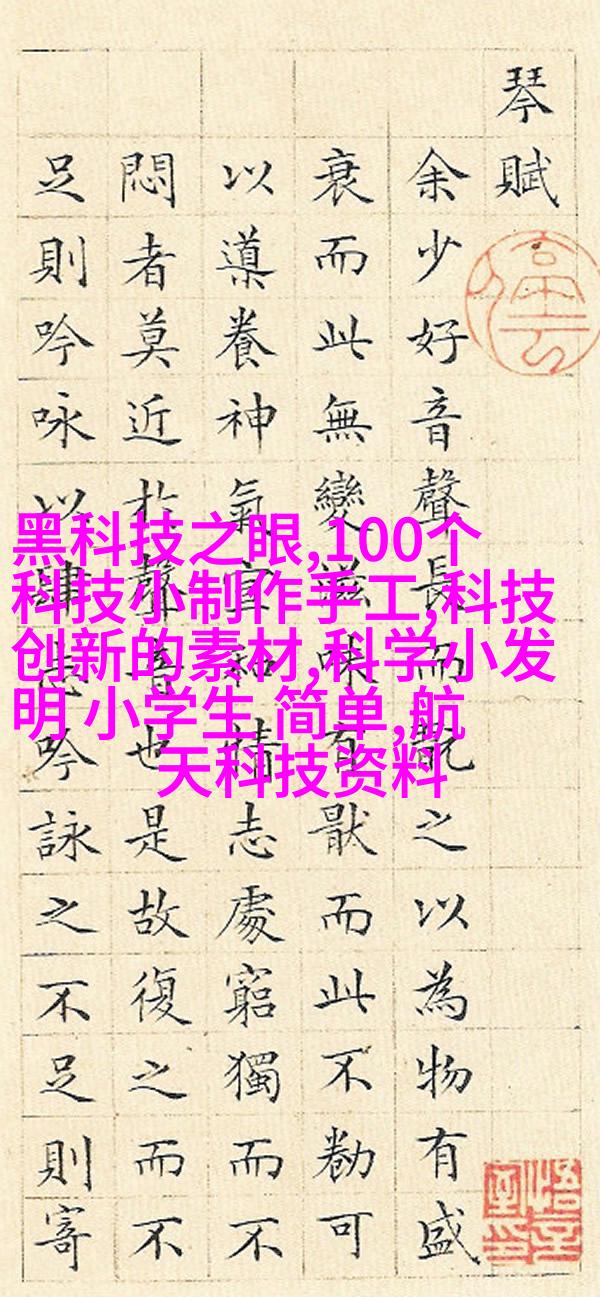 琴賦
余少好音聲長而翫之以為物有盛
衰而此無變滋味有猒而此不勌可
以導養神氣宣和情志處窮獨而不
悶者莫近扵聲音也是故復之而不
足則吟咏以肆志吟詠之不足則寄
黑科技之眼,100个
科技小制作手工,科技
创新的素材,科学小发
明 小学生 简单,航
天科技资料